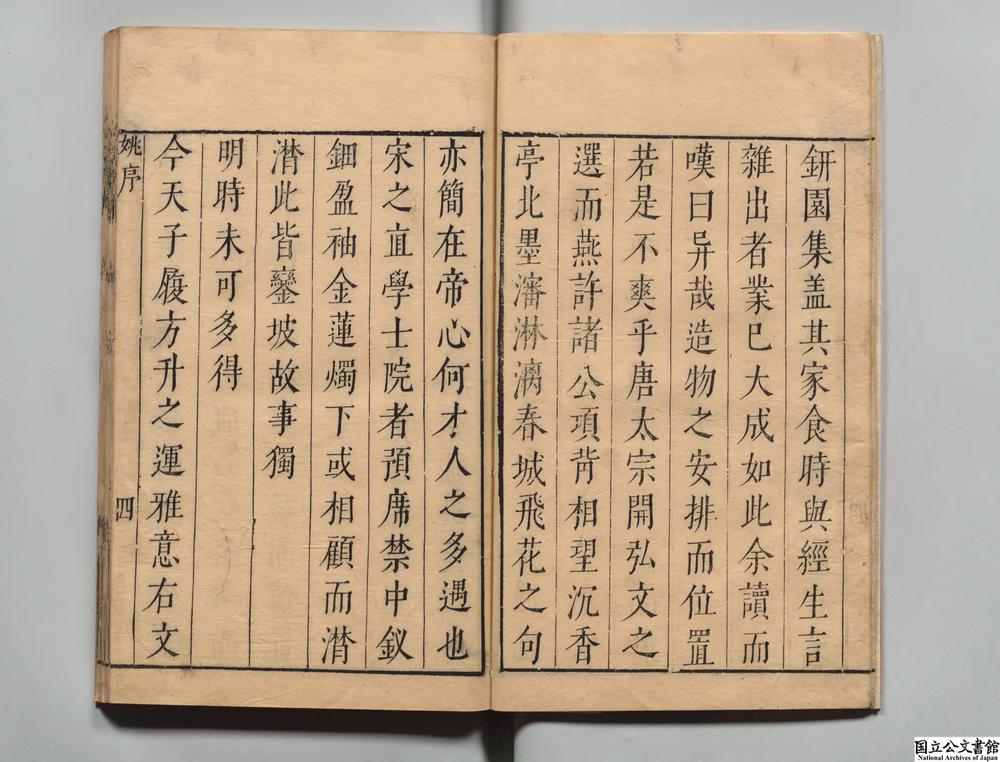 鈃園集盖其家食時與經生言
雜出者業已大成如此余讀而
嘆曰异哉造物之安排而位置
若是不爽乎唐太宗開弘文之
選而燕許諸公項背相望沉香
亭北墨瀋淋漓春城飛花之句
亦簡在帝心何才人之多遇也
宋之直學士院者預席禁中釵
鈿盈袖金蓮燭下或相顧而潸
潸此皆鑾坡故事獨
明時未可多得
今天子履方升之運雅意右文
姚序
四
国立公文書館
National Archives of Japan